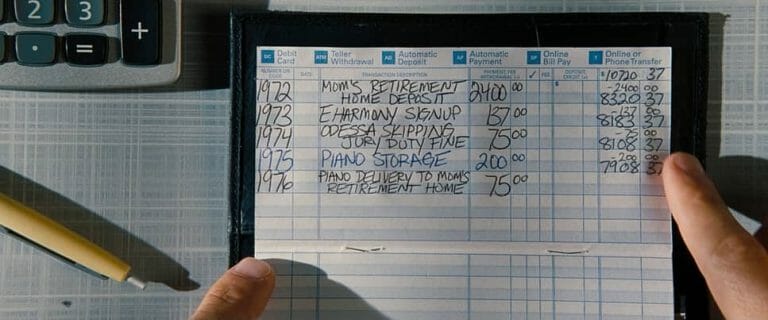 2 3
. = +
DC Debit Card ATM Teller Withdrawal AD Automatic Deposit AP Automatic Payment BP Online Bill Pay T Online or Phone Transfer
NUMBER OR CODE DATE TRANSACTION DESCRIPTION ✓ FEE $10720 37
1972 MOM'S RETIREMENT HOME DEPOSIT 2400 00 -2400 00
8320 37
1973 EHARMONY SIGNUP 137 00 -137 00
8183 37
1974 ODESSA SKIPPING JURY DUTY FINE 75 00 -75 00
8108 37
1975 PIANO STORAGE 200 00 -200 00
7908 37
1976 PIANO DELIVERY TO MOM'S RETIREMENT HOME 75 00